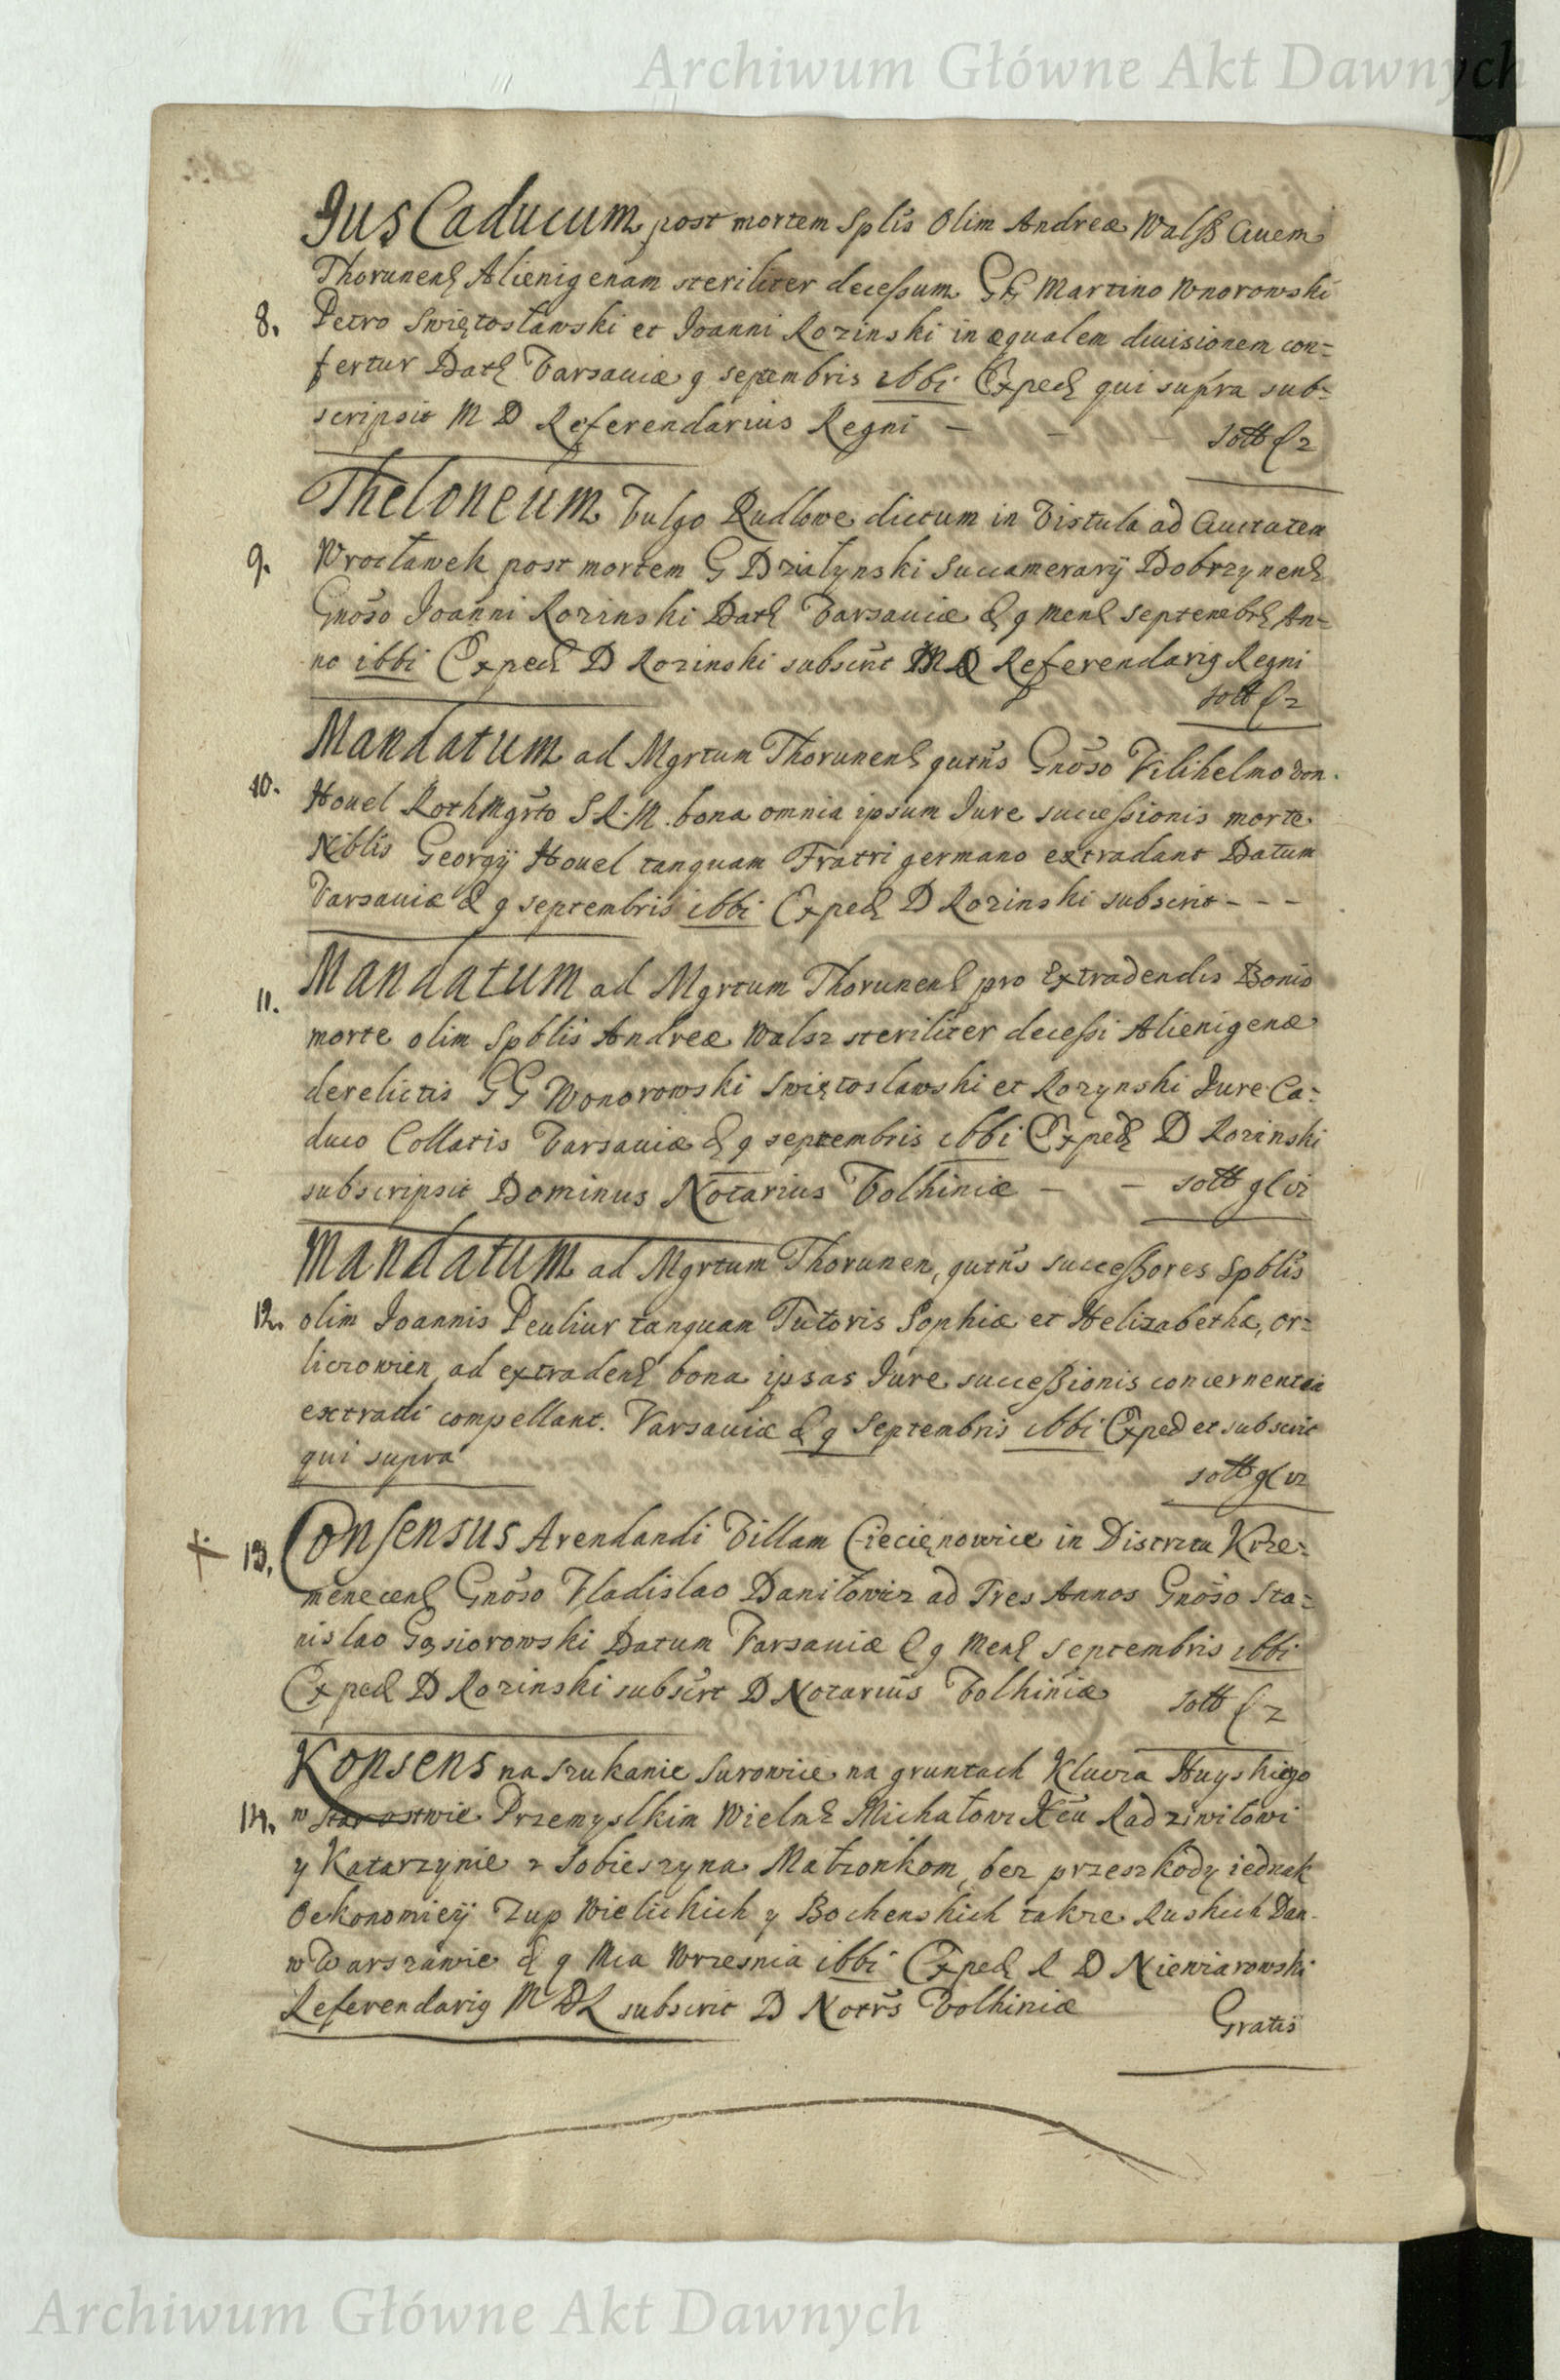 Archiwum Główne Akt Dawnych
Jus Caducum post mortem Splis Olim Andreæ Walss Ciuem
Thorunens Alienigenam steriliter decessum GG Martino Wnorowski
8. Petro Swiętosławski et Joanni Rozinski in æqualem diuisionem con=
fertur Dats Varsauiæ 9 septembris 1661 Exped qui supra sub=
scripsit M D Referendarius Regni - -
sott f 2
Theloneum Vulgo Rudlowe dictum in Vistula ad Ciuitatem
9. Wrocławek post mortem G Działynski Succamerarij Dobrzynens
Gnoso Joanni Rozinski Dats Varsauiæ d 9 Mens Septembrs An=
no 1661 Exped D Rozinski subscrit M D Referendarig Regni
sott f 2
Mandatum ad Mgrtum Thorunens qutns Gnoso Vilihelmo von
10. Houel RothMgrto S R M. bona omnia ipsum Jure successionis morte
Niblis Georgij Houel tanquam Fratri germano extradant Datum
Varsauiæ d 9 septembris 1661 Exped D Rozinski subscrit - - -
Mandatum ad Mgrtum Thorunens pro Extradendis Bonis
11. morte olim Spblis Andreæ Walsz steriliter decessi Alienigenæ
derelictis GG Wonorowski Swiętoslawski et Rozynski Jure Ca=
duco Collatis Varsauiæ d 9 septembris 1661 Exped D Rozinski
subscripsit Dominus Notarius Volhiniæ - - sott
Mandatum ad Mgrtum Thorunen, qutns successores Spblis
12. olim Joannis Peuliur tanquam Tutoris Sophiæ et Helizabethæ, or=
licrowien, ad extradens bona ipsas Jure successionis concernentia
extradi compellant. Varsauiæ d 9 Septembris 1661 Exped et subscrit
qui supra
sott
Consensus Arendandi Villam Ciecięnowice in Districtu Krze=
13. menecens Gnoso Vladislao Daniłowicz ad Tres Annos Gnoso Sta=
nislao Gąsiorowski Datum Varsauiæ d 9 Mens septembris 1661
Exped D Rozinski subscrt D Notarius Volhiniæ sott f 2
Konsens na szukanie surowice na gruntach Klucza Huyskiego
14. w Starostwie Przemyslkim Wielmz Michałowi Xcu Radziwiłowi
y Katarzynie z Sobieszyna Małzonkom, bez przeszkody iednak
Oekonomieij Zup Wielickich y Bochenskich takze Ruskich Dan
w Warszawie d 9 Mca Wrzesnia 1661 Exped R D Niewiarowski
Referendarig M D L subscrit D Notrs Volhiniæ
Gratis
Archiwum Główne Akt Dawnych